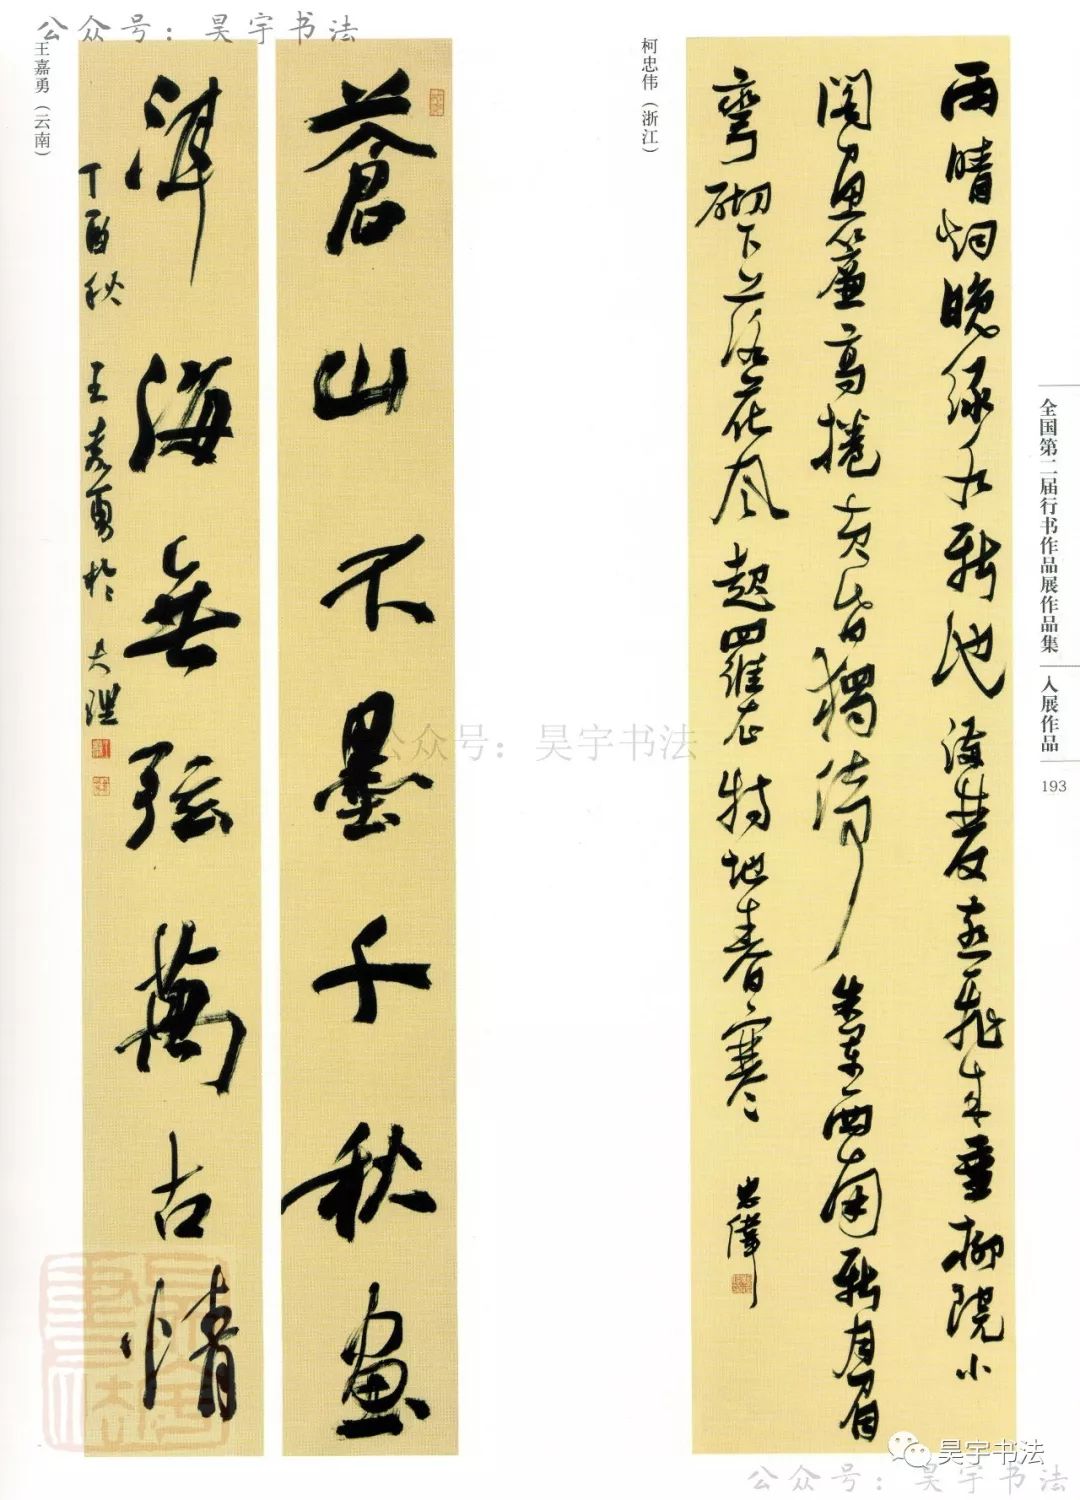 公众号：昊宇书法
全国第二届行书作品展作品集
入展作品
193
雨晴烟晚綠水新池滿雙燕飛来垂柳院小
閣畫簾高捲黄昏獨倚朱闌西南新月眉
彎砌下落花風起羅衣特地春寒
忠偉
柯忠伟（浙江）
蒼山不墨千秋畫
洱海無弦萬古情
丁酉秋 王嘉勇於大理
王嘉勇（云南）
公众号：昊宇书法
昊宇书法
公众号：昊宇书法